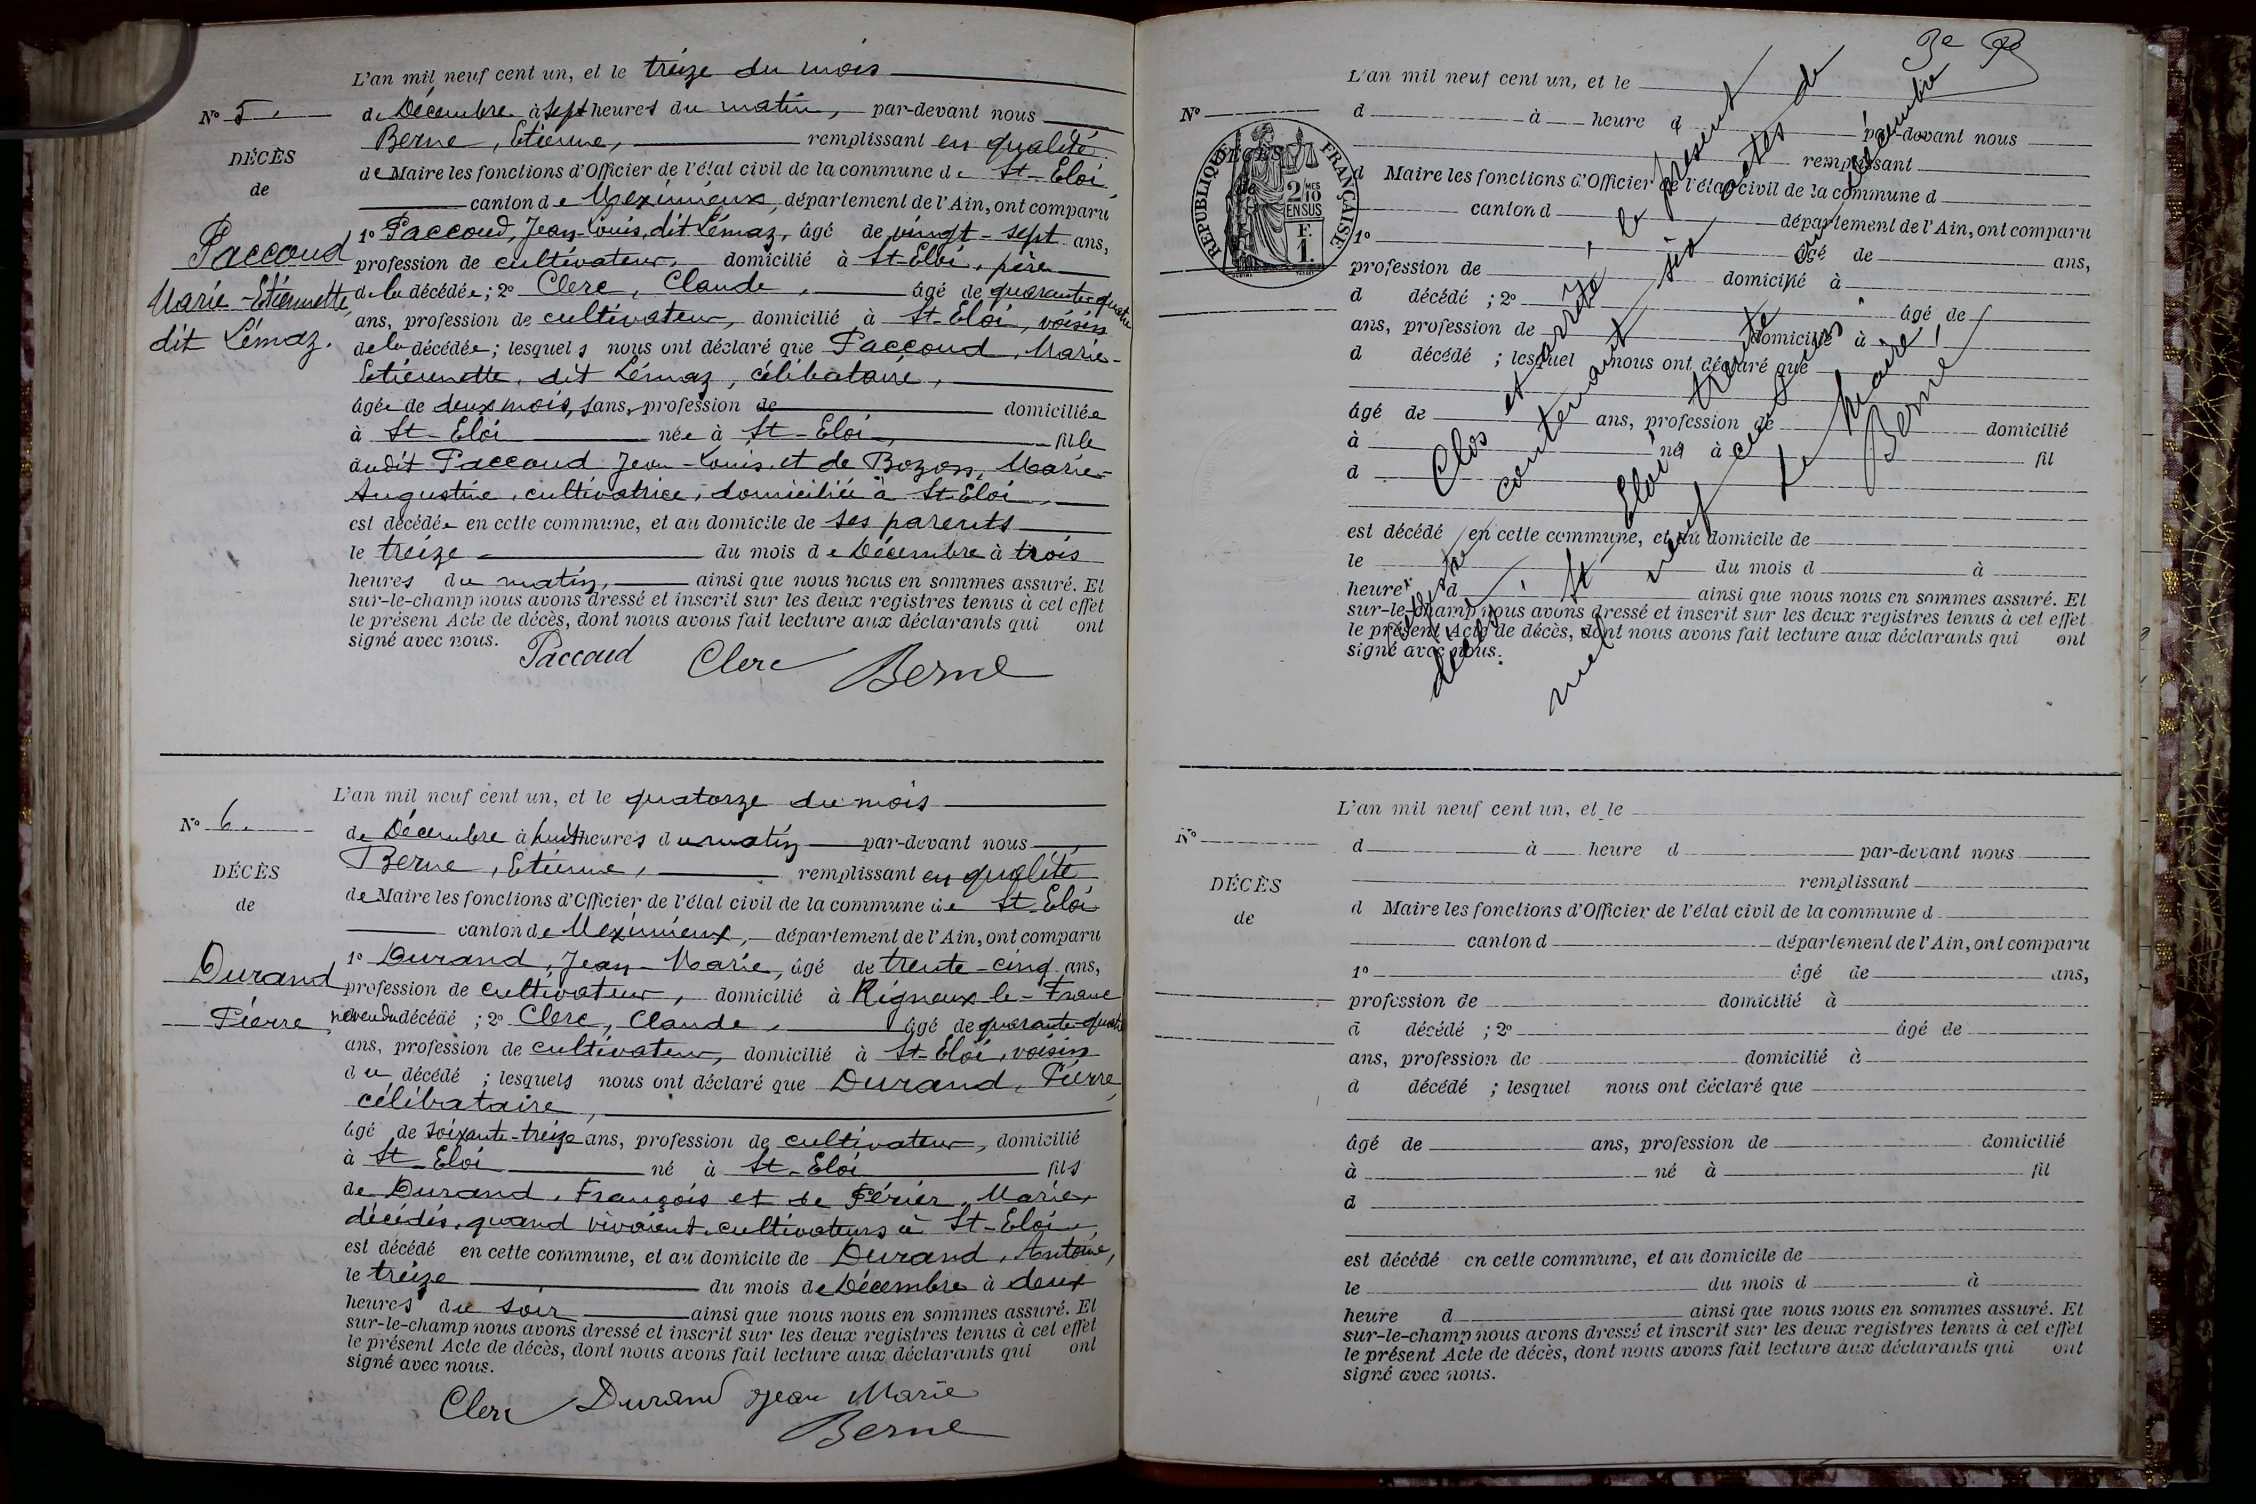 L'an mil neuf cent un, et le treize du mois
N° 5.
de Décembre à sept heures du matin, par-devant nous
Berne, Etienne, remplissant en qualité
DÉCÈS
de Maire les fonctions d'Officier de l'état civil de la commune de St-Eloi,
de
canton de Meximieux, département de l'Ain, ont comparu
Paccoud
Marie-Etiennette,
dit Lémaz.
1° Paccoud, Jean-Louis, dit Lémaz, âgé de vingt-sept ans,
profession de cultivateur, domicilié à St-Eloi, père
de la décédée; 2° Clerc, Claude, âgé de quarante-quatre
ans, profession de cultivateur, domicilié à St-Eloi, voisin
de la décédée; lesquels nous ont déclaré que Paccoud, Marie-
Etiennette, dit Lémaz, célibataire,
âgée de deux mois, sans, profession de domiciliée
à St-Eloi née à St-Eloi, fille
dudit Paccoud Jean-Louis, et de Bozon, Marie-
Augustine, cultivatrice, domiciliée à St-Eloi,
est décédée en cette commune, et au domicile de ses parents
le treize du mois de Décembre à trois
heures du matin, ainsi que nous nous en sommes assuré. Et
sur-le-champ nous avons dressé et inscrit sur les deux registres tenus à cet effet
le présent Acte de décès, dont nous avons fait lecture aux déclarants qui ont
signé avec nous.
Paccoud Clerc Berne
L'an mil neuf cent un, et le quatorze du mois
N° 6.
de Décembre à huit heures du matin par-devant nous
Berne, Etienne, remplissant en qualité
DÉCÈS
de Maire les fonctions d'Officier de l'état civil de la commune de St-Eloi
de
canton de Meximieux, département de l'Ain, ont comparu
Durand
Pierre
1° Durand, Jean-Marie, âgé de trente-cinq ans,
profession de cultivateur, domicilié à Rigneux-le-Franc
neveu du décédé; 2° Clerc, Claude, âgé de quarante-quatre
ans, profession de cultivateur, domicilié à St-Eloi, voisin
du décédé; lesquels nous ont déclaré que Durand, Pierre,
célibataire,
âgé de soixante-treize ans, profession de cultivateur, domicilié
à St-Eloi né à St-Eloi fils
de Durand, François et de Périer, Marie,
décédés, quand vivaient cultivateurs à St-Eloi,
est décédé en cette commune, et au domicile de Durand, Antoine,
le treize du mois de Décembre à deux
heures du soir ainsi que nous nous en sommes assuré. Et
sur-le-champ nous avons dressé et inscrit sur les deux registres tenus à cet effet
le présent Acte de décès, dont nous avons fait lecture aux déclarants qui ont
signé avec nous.
Clerc Durand Jean Marie
Berne
3e
L'an mil neuf cent un, et le
N°
d à heure d par-devant nous
remplissant
DÉCÈS
de
RÉPUBLIQUE FRANÇAISE
2 MES
10
EN SUS
F.
1.
d Maire les fonctions d'Officier de l'état civil de la commune d
canton d département de l'Ain, ont comparu
1° âgé de ans,
profession de domicilié à
d décédé; 2° âgé de
ans, profession de domicilié à
d décédé; lesquel nous ont déclaré que
âgé de ans, profession de domicilié
à né à fil
d
est décédé en cette commune, et au domicile de
le du mois d à
heure d ainsi que nous nous en sommes assuré. Et
sur-le-champ nous avons dressé et inscrit sur les deux registres tenus à cet effet
le présent Acte de décès, dont nous avons fait lecture aux déclarants qui ont
signé avec nous.
Clos et arrêté, le présent
registre contenant six actes de
décès, St-Eloi, trente un décembre
mil neuf cent un
Le Maire,
Berne
L'an mil neuf cent un, et le
N°
d à heure d par-devant nous
remplissant
DÉCÈS
d Maire les fonctions d'Officier de l'état civil de la commune d
de
canton d département de l'Ain, ont comparu
1° âgé de ans,
profession de domicilié à
d décédé; 2° âgé de
ans, profession de domicilié à
d décédé; lesquel nous ont déclaré que
âgé de ans, profession de domicilié
à né à fil
d
est décédé en cette commune, et au domicile de
le du mois d à
heure d ainsi que nous nous en sommes assuré. Et
sur-le-champ nous avons dressé et inscrit sur les deux registres tenus à cet effet
le présent Acte de décès, dont nous avons fait lecture aux déclarants qui ont
signé avec nous.